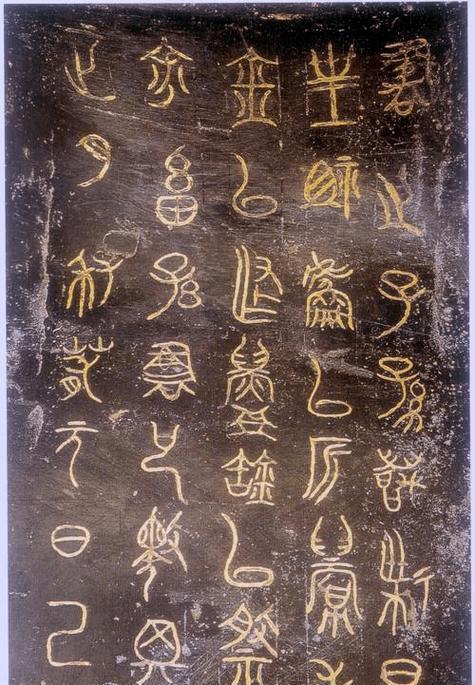 正月季春元日己
余畜孫書已擇其
金以作鑄缶以祭
皇祖虘以祈眉
書之子孫萬世